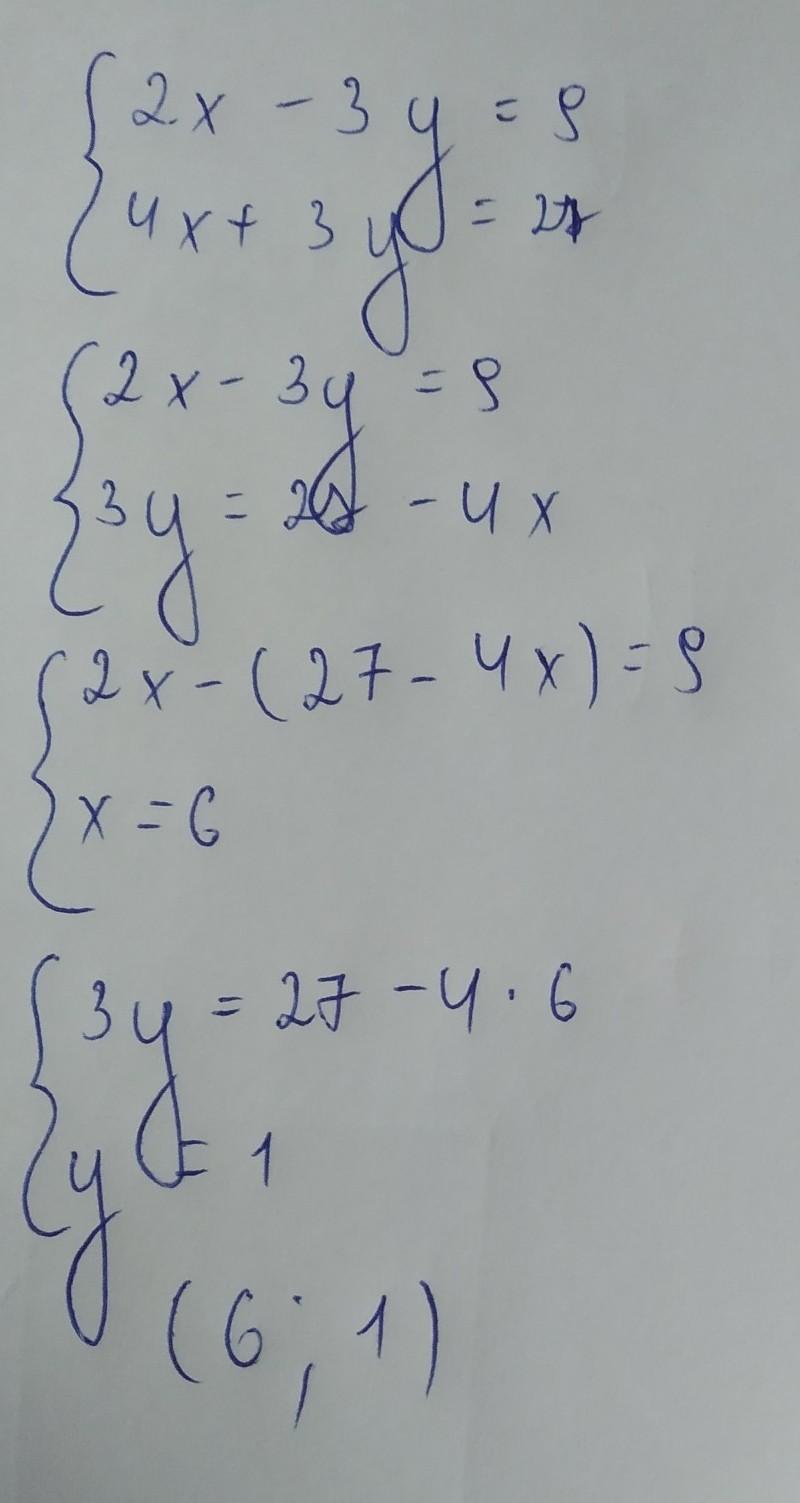 2x - 3y = 9
4x + 3y = 27
2x - 3y = 9
3y = 27 - 4x
2x - (27 - 4x) = 9
x = 6
3y = 27 - 4 · 6
y = 1
(6; 1)